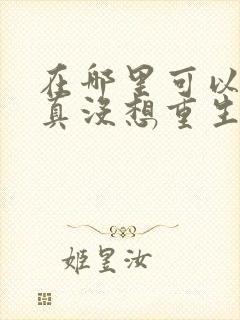 在哪里可以
真没想重生
姬昱汝